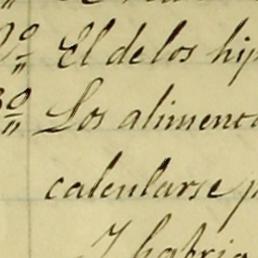 2º El de los hip
3º Los alimento
calcularse p
I habria